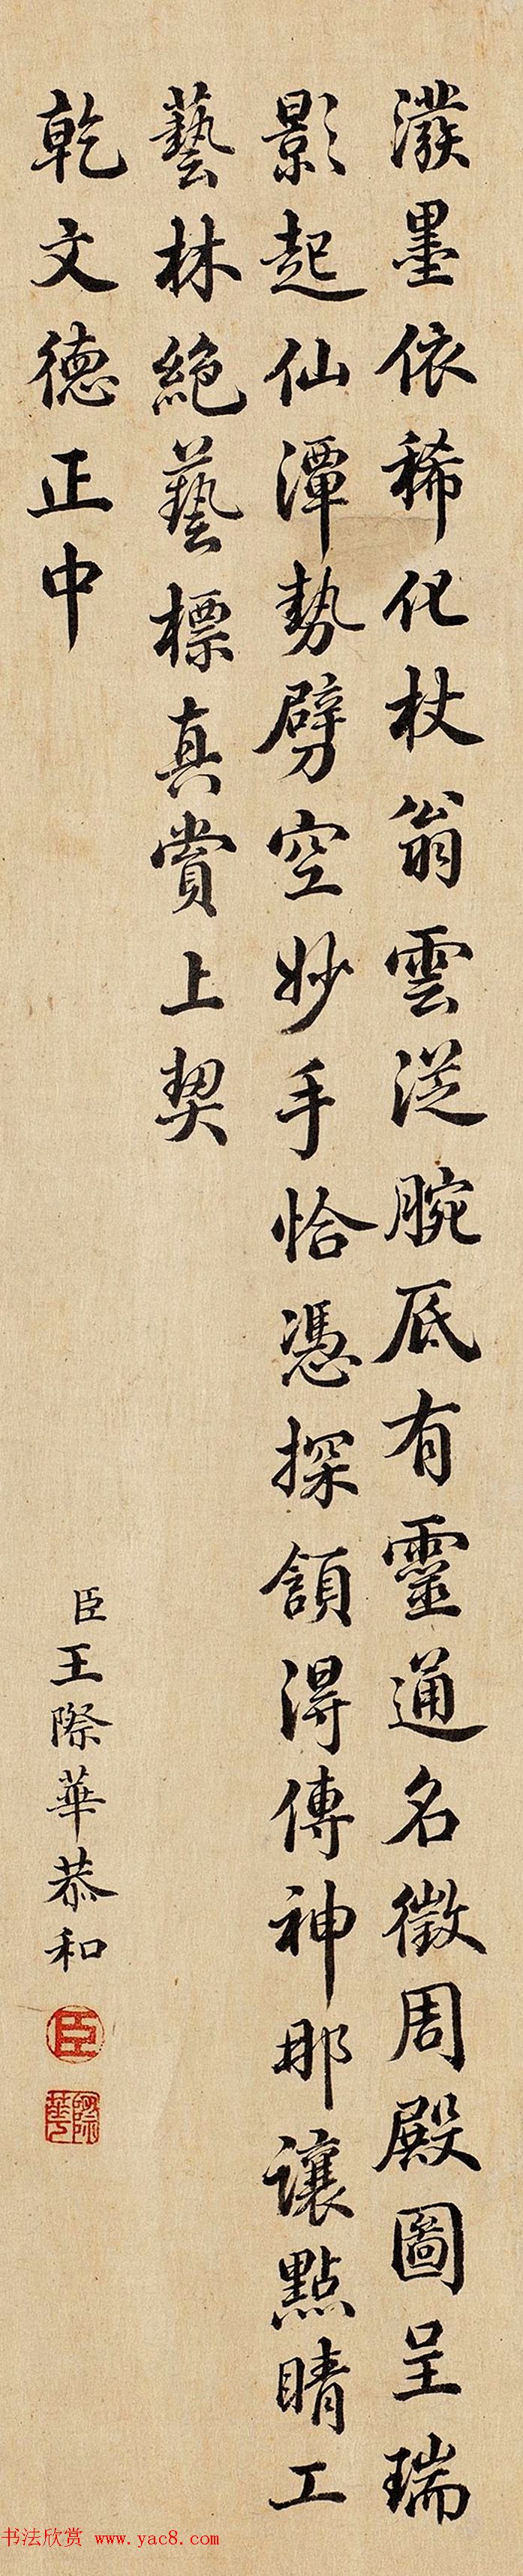 潑墨依稀化杖翁雲從腕底有靈通名徵周殿圖呈瑞
影起仙潭勢劈空妙手恰憑探頷得傳神那讓點睛工
藝林絕藝標真賞上契
乾文德正中
臣王際華恭和
臣
際華
书法欣赏 www.yac8.com